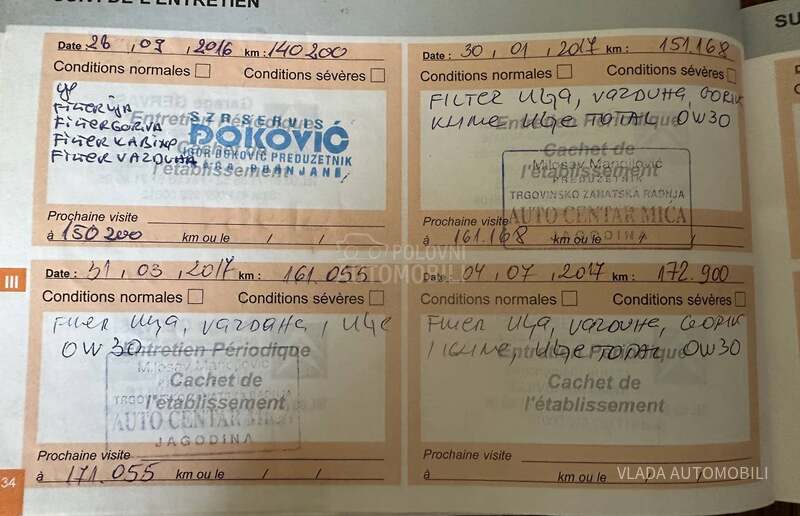 SUIVI DE L'ENTRETIEN
SU
Date : 26 , 09 , 2016 km : 140200
Conditions normales
Conditions sévères
ulje
FILTER ULJA
FILTER GORIVA
FILTER KABINE
FILTER VAZDUHA
SZR SERVIS
ĐOKOVIĆ
IGOR ĐOKOVIĆ PREDUZETNIK
PRANJANI
Entretien Périodique
Cachet de
l'établissement
Prochaine visite
à 150200 km ou le / /
Date : 30 , 01 , 2017 km : 151.168
Conditions normales
Conditions sévères
FILTER ULJA, VAZDUHA, GORIVA
KLIME, ULJE TOTAL 0W30
Entretien Périodique
Cachet de
l'établissement
Milosav Manojlović
PREDUZETNIK
TRGOVINSKO ZANATSKA RADNJA
AUTO CENTAR MIĆA
JAGODINA
Prochaine visite
à 161.168 km ou le / /
POLOVNI
AUTOMOBILI
III
Date : 31 , 03 , 2017 km : 161.055
Conditions normales
Conditions sévères
FILTER ULJA, VAZDUHA, ULJE
0W30
Entretien Périodique
Cachet de
l'établissement
AUTO CENTAR MIĆA
JAGODINA
Prochaine visite
à 171.055 km ou le / /
Date : 04 , 07 , 2017 km : 172.900
Conditions normales
Conditions sévères
FILTER ULJA, VAZDUHA, GORIVA
I KLIME, ULJE TOTAL 0W30
Entretien Périodique
Cachet de
l'établissement
Prochaine visite
à km ou le / /
34
VLADA AUTOMOBILI